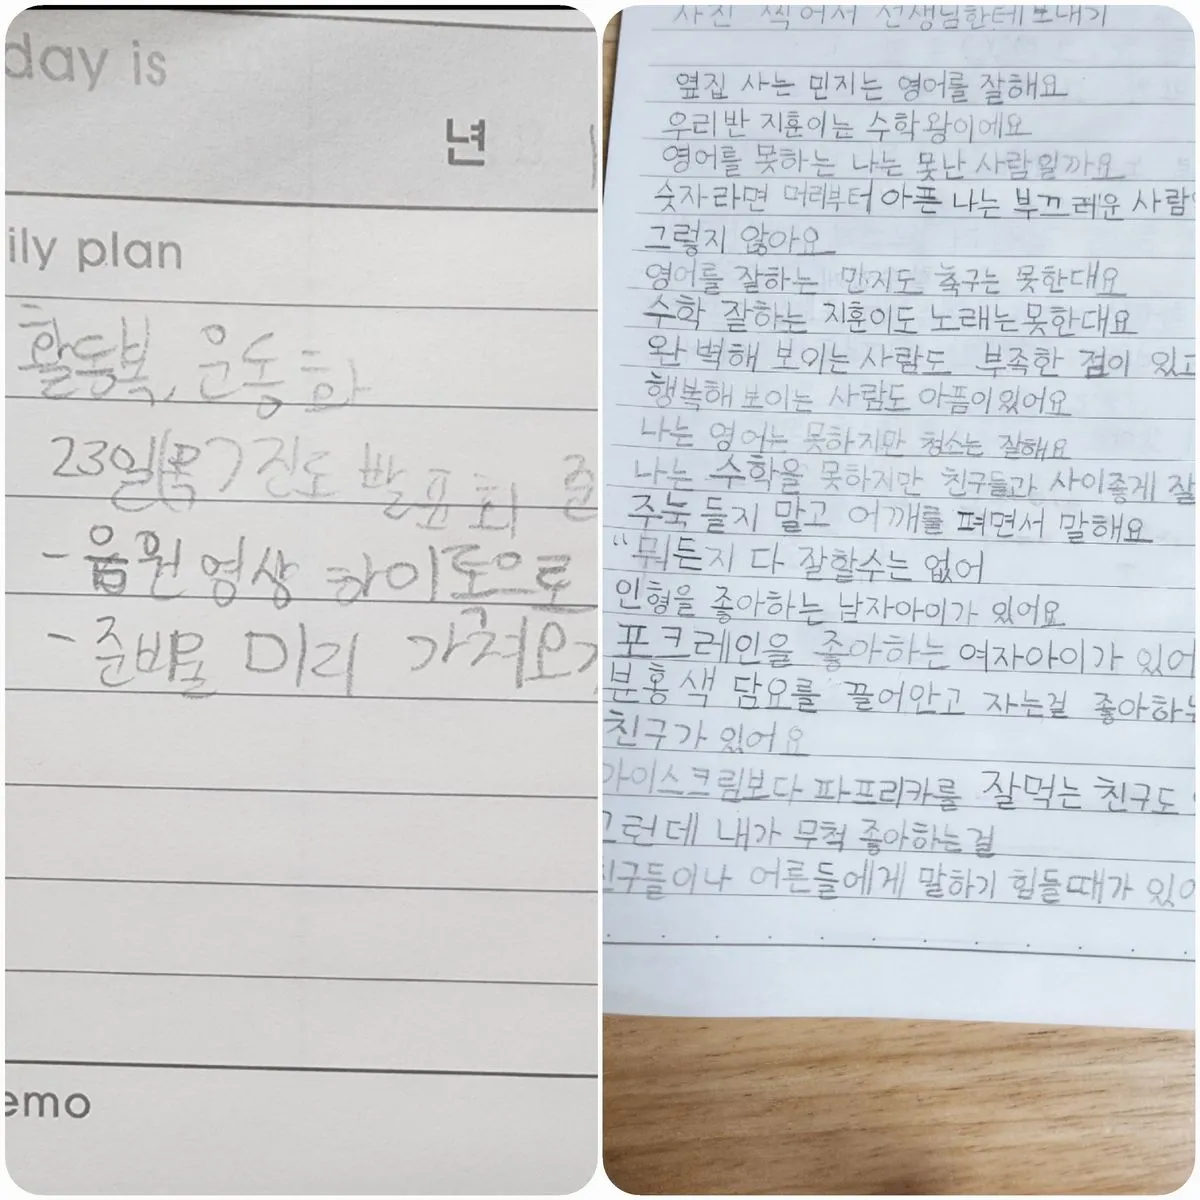 day is
년
ily plan
활동복, 운동화
23일(목) 진도 발표회 준
- 음원 영상 하이도으로
- 준비물 미리 가져오기
emo
사진 찍어서 선생님한테 보내기
옆집 사는 민지는 영어를 잘해요
우리반 지훈이는 수학왕이에요
영어를 못하는 나는 못난 사람일까요
숫자라면 머리부터 아픈 나는 부끄러운 사람
그렇지 않아요
영어를 잘하는 민지도 축구는 못한대요
수학 잘하는 지훈이도 노래는 못한대요
완벽해 보이는 사람도 부족한 점이 있고
행복해 보이는 사람도 아픔이 있어요
나는 영어는 못하지만 청소는 잘해요
나는 수학을 못하지만 친구들과 사이좋게 잘
주눅 들지 말고 어깨를 펴면서 말해요
“뭐든지 다 잘할수는 없어
인형을 좋아하는 남자아이가 있어요
포크레인을 좋아하는 여자아이가 있어
분홍색 담요를 끌어안고 자는걸 좋아하는
친구가 있어요
가이스크림보다 파프리카를 잘먹는 친구도
그런데 내가 무척 좋아하는걸
친구들이나 어른들에게 말하기 힘들때가 있어